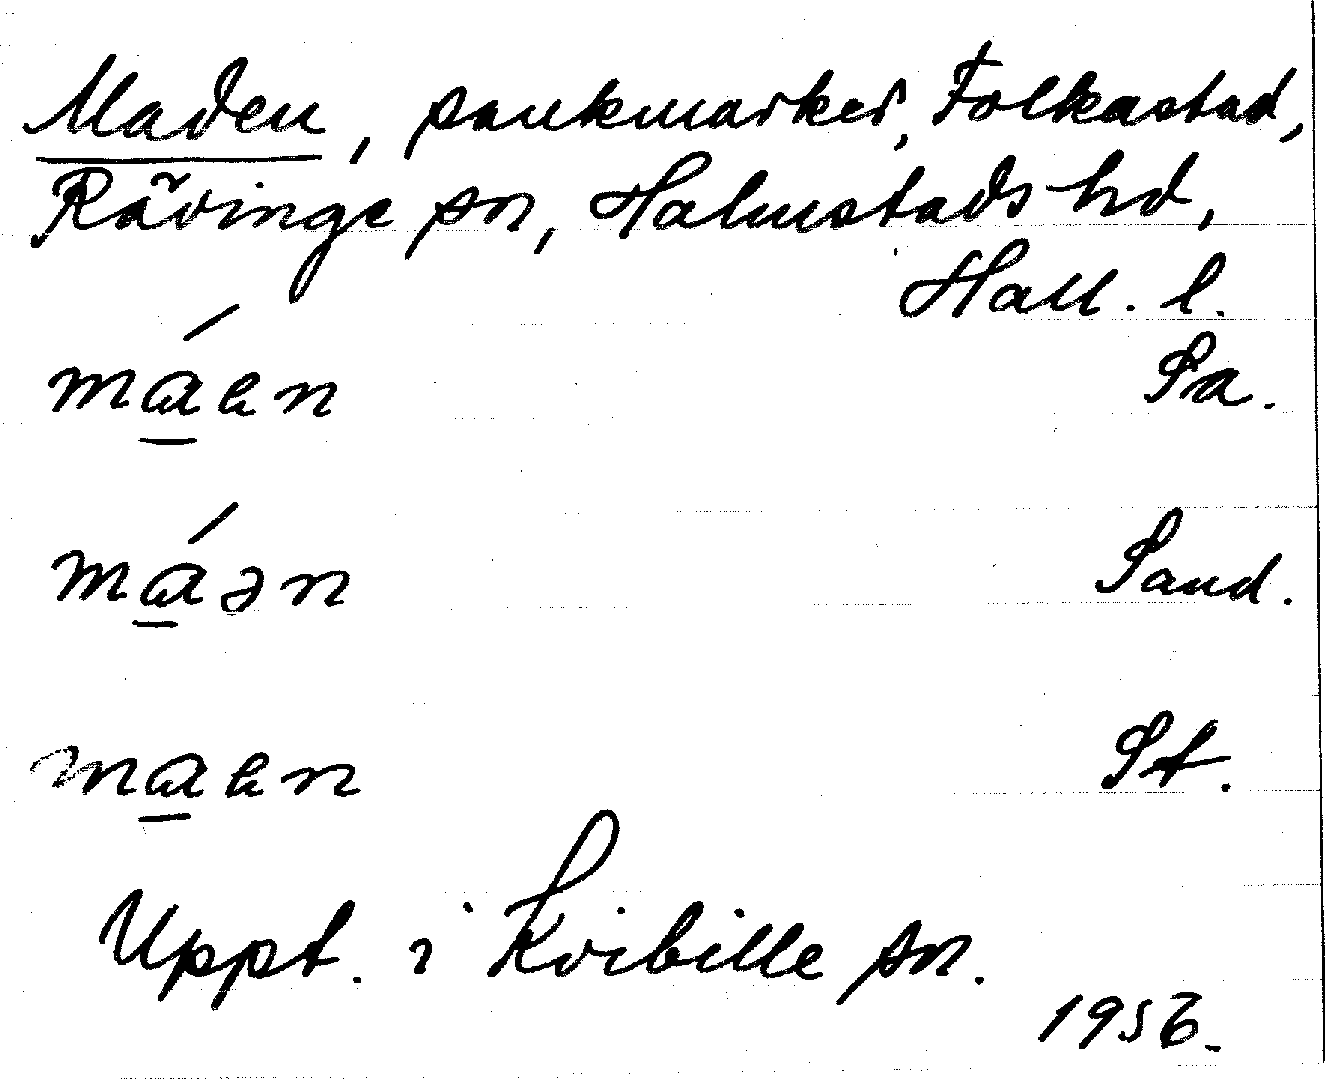 Maden, sankmarker, Folkastad,
Rävinge sn, Halmstads hd,
Hall. l.
máen Sa.
máən Sand.
maen St.
Uppt. i Kvibille sn.
1956.